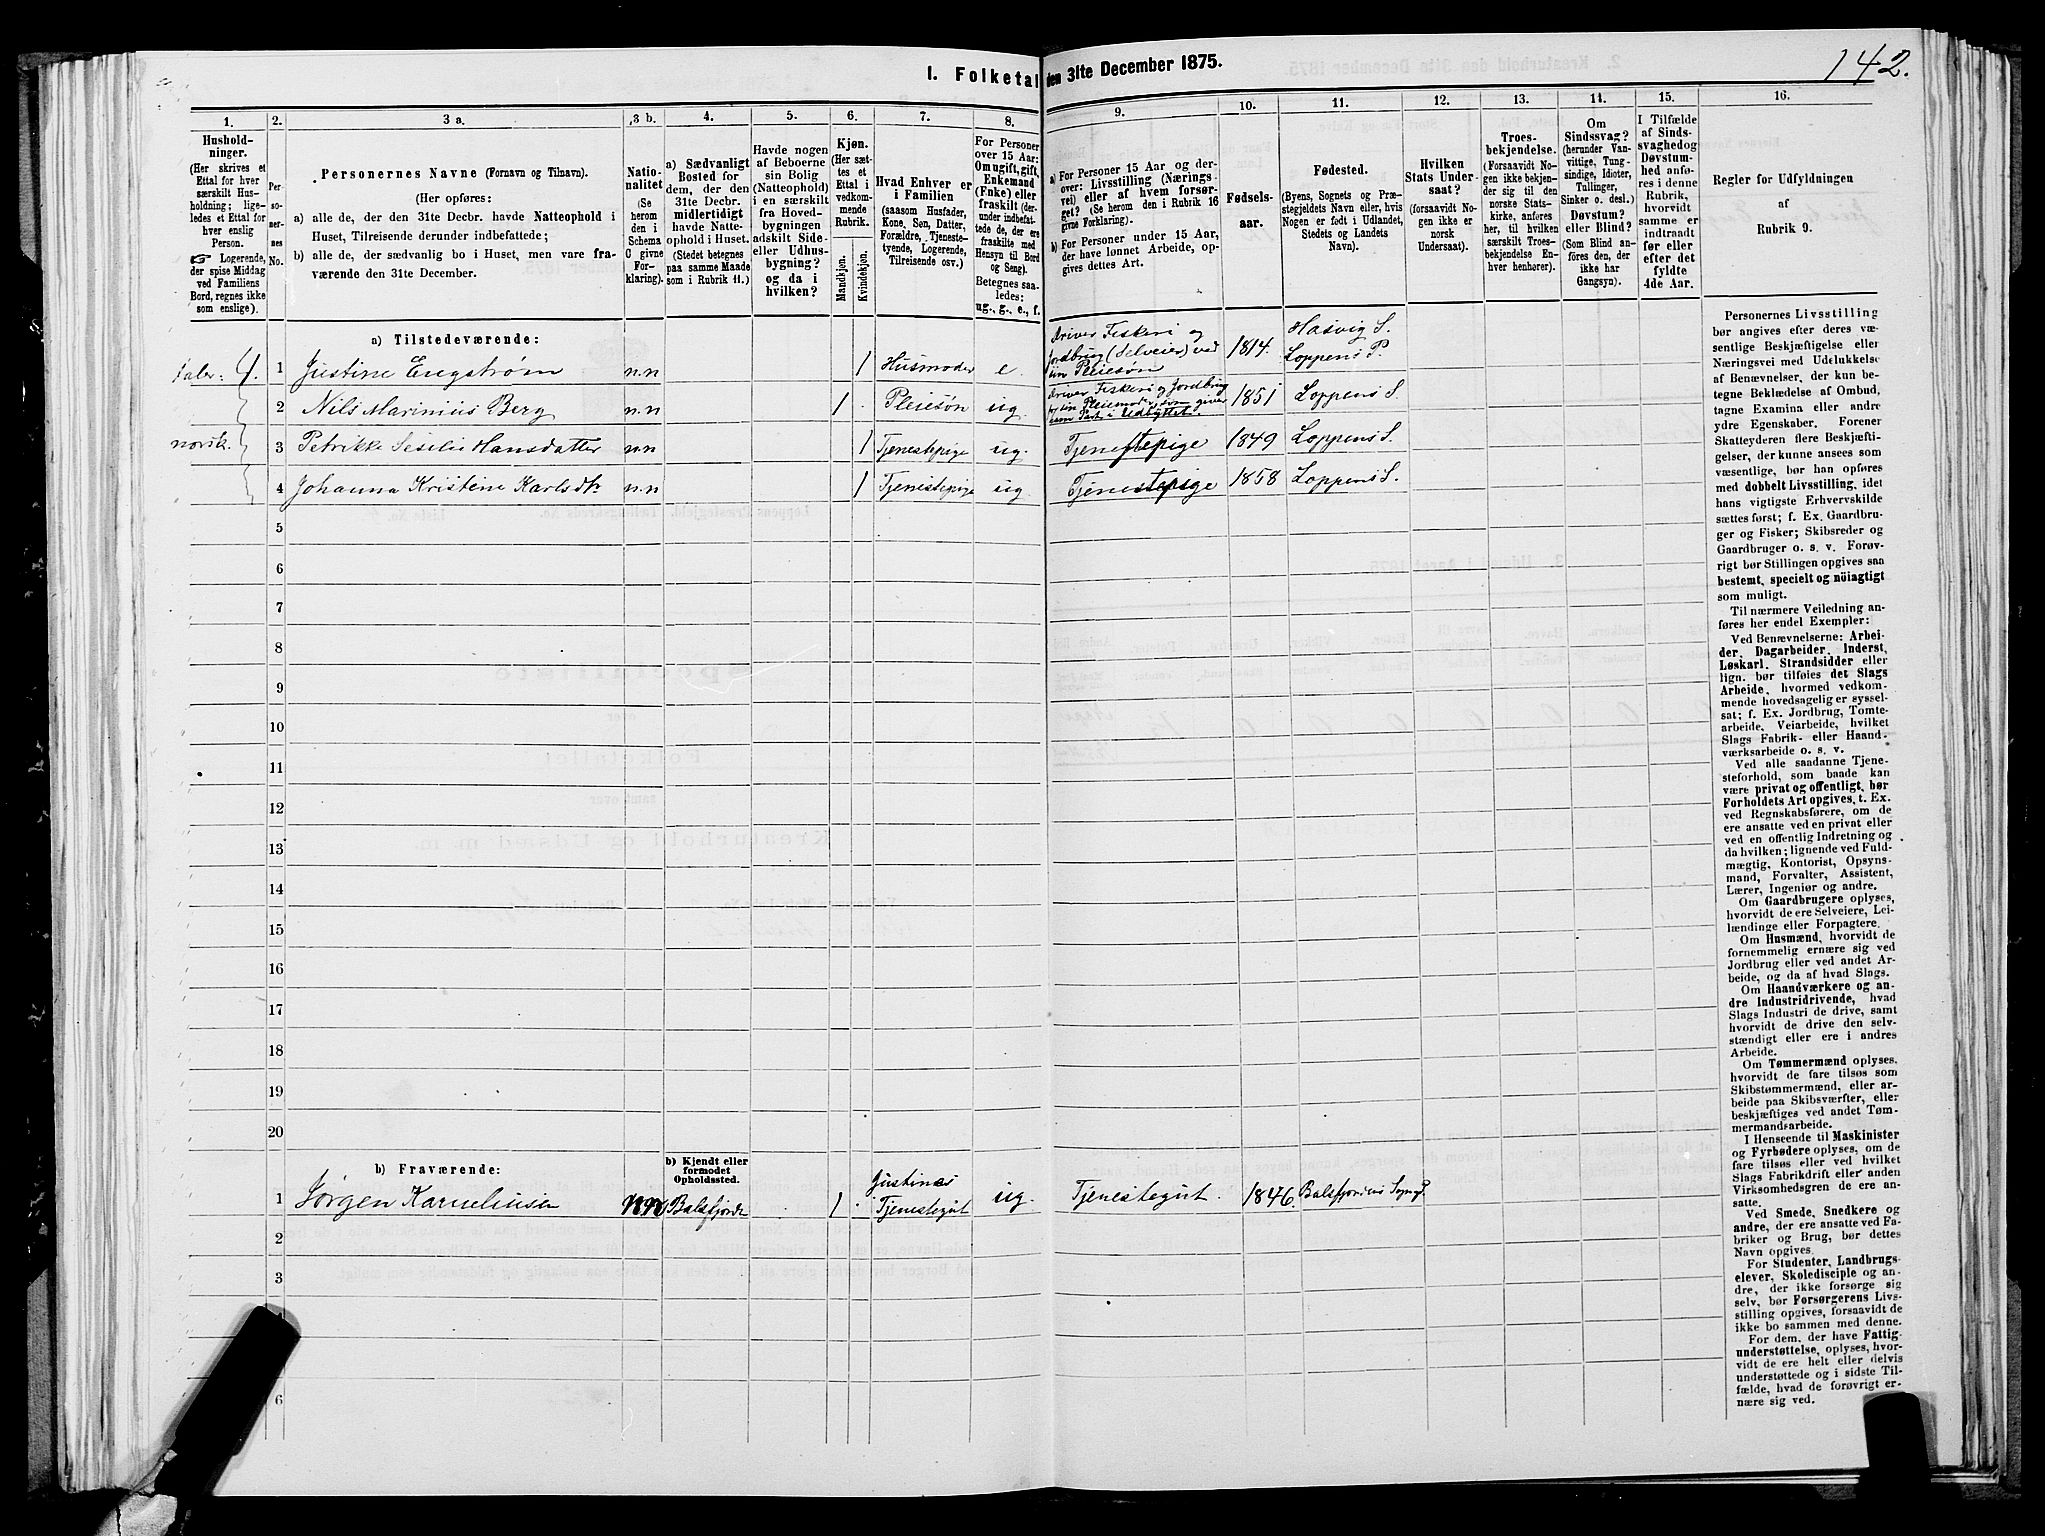 I. Folketal den 31te December 1875.
142.
1.
Hushold-
ninger.
(Her skrives et
Ettal for hver
særskilt Hus-
holdning; lige-
ledes et Ettal for
hver enslig
Person.
☞ Logerende,
der spise Middag
ved Familiens
Bord, regnes ikke
som enslige).
2.
Per-
so-
ner-
nes
No.
3 a.
Personernes Navne (Fornavn og Tilnavn).
(Her opføres:
a) alle de, der den 31te Decbr. havde Natteophold i
Huset, Tilreisende derunder indbefattede;
b) alle de, der sædvanlig bo i Huset, men vare fra-
værende den 31te December.
3 b.
Natio-
nalitet
(Se
herom
den i
Schema
C givne
For-
klaring).
4.
a) Sædvanligt
Bosted for
dem, der den
31te Decbr.
midlertidigt
havde Natte-
ophold i Huset.
(Stedet betegnes
paa samme Maade
som i Rubrik 11.)
5.
Havde nogen
af Beboerne
sin Bolig
(Natteophold)
i en særskilt
fra Hoved-
bygningen
adskilt Side-
eller Udhus-
bygning?
og da i
hvilken?
6.
Kjøn.
(Her sæt-
tes et
Ettal i
vedkom-
mende
Rubrik.
Mandkjøn.
Kvindekjøn.
7.
Hvad Enhver er
i Familien
(saasom Husfader,
Kone, Søn, Datter,
Forældre, Tjeneste-
tyende, Logerende,
Tilreisende osv.)
8.
For Personer
over 15 Aar:
Om ugift, gift,
Enkemand
(Enke) eller
fraskilt (der-
under indbefat-
tede de, der ere
fraskilte med
Hensyn til Bord
og Seng).
Betegnes saa-
ledes:
ug., g., e., f.
9.
a) For Personer 15 Aar og der-
over: Livsstilling (Nærings-
vei) eller af hvem forsør-
get? (Se herom den i Rubrik 16
givne Forklaring).
b) For Personer under 15 Aar,
der have lønnet Arbeide, op-
gives dettes Art.
10.
Fødsels-
aar.
11.
Fødested.
(Byens, Sognets og Præ-
stegjeldets Navn eller, hvis
Nogen er født i Udlandet,
Stedets og Landets
Navn).
12.
Hvilken
Stats Under-
saat?
(forsaavidt No-
gen ikke er
norsk
Undersaat).
13.
Troes-
bekjendelse.
(Forsaavidt No-
gen ikke bekjen-
der sig til den
norske Stats-
kirke, anføres
her, til hvilken
særskilt Troes-
bekjendelse En-
hver henhører).
14.
Om
Sindssvag?
(herunder Van-
vittige, Tung-
sindige, Idioter,
Tullinger,
Sinker o. desl.)
Døvstum?
eller Blind?
(Som Blind an-
føres den, der
ikke har
Gangsyn).
15.
I Tilfælde
af Sinds-
svaghed og
Døvstum-
hed anfø-
res i denne
Rubrik,
hvorvidt
samme er
indtraadt
før eller
efter det
fyldte
4de Aar.
16.
Regler for Udfyldningen
af
Rubrik 9.
a) Tilstedeværende:
taler: 4. 1 Justine Engstrøm n.n 1 Husmoder e. driver Fiskeri og jordbrug (Selveier) ved sin Pleiesøn 1814. Hasvig S. Loppens P.
2 Nils Marinius Berg n.n 1 Pleiesøn ug. driver Fiskeri og Jordbrug for sin Pleiemoder, som giver ham Part i Udbyttet. 1851 Loppens S.
norsk. 3 Petrikke Seselie Hansdatter n.n 1 Tjenestepige ug. Tjenestepige 1849 Loppens S.
4 Johanna Kristine Karlsdtr n.n 1 Tjenestepige ug Tjenestepige 1858 Loppens S.
5
6
7
8
9
10
11
12
13
14
15
16
17
18
19
20
b) Fraværende:
b) Kjendt eller
formodet
Opholdssted.
1 Jørgen Karneliusen Balsfjorde 1 Justines Tjenestegut ug. Tjenestegut. 1846. Balsfjordens Sogn
2
3
6
Personernes Livsstilling
bør angives efter deres væ-
sentlige Beskjæftigelse eller
Næringsvei med Udelukkelse
af Benævnelser, der kun be-
tegne Beklædelse af Ombud,
tagne Examina eller andre
ydre Egenskaber. Forener
Skatteyderen flere Beskjæfti-
gelser, der kunne ansees som
væsentlige, bør han opføres
med dobbelt Livsstilling, idet
hans vigtigste Erhvervskilde
sættes først; f. Ex. Gaardbru-
ger og Fisker; Skibsreder og
Gaardbruger o. s. v. Forøv-
rigt bør Stillingen opgives saa
bestemt, specielt og nöiagtigt
som muligt.
Til nærmere Veiledning an-
føres her endel Exempler:
Ved Benævnelserne: Arbei-
der, Dagarbeider, Inderst,
Løskarl, Strandsidder eller
lign. bør tilføies det Slags
Arbeide, hvormed vedkom-
mende hovedsagelig er syssel-
sat; f. Ex. Jordbrug, Tomte-
arbeide, Veiarbeide, hvilket
Slags Fabrik- eller Haand-
værksarbeide o. s. v.
Ved alle saadanne Tjene-
steforhold, som baade kan
være privat og offentligt, bør
Forholdets Art opgives, t. Ex.
ved Regnskabsførere, om de
ere ansatte ved en privat eller
ved en offentlig Indretning og
da hvilken; lignende ved Fuld-
mægtig, Kontorist, Opsyns-
mand, Forvalter, Assistent,
Lærer, Ingeniør og andre.
Om Gaardbrugere oplyses,
hvorvidt de ere Selveiere, Lei-
lændinge eller Forpagtere.
Om Husmænd, hvorvidt de
fornemmelig ernære sig ved
Jordbrug eller ved andet Ar-
beide, og da af hvad Slags.
Om Haandværkere og an-
dre Industridrivende, hvad
Slags Industri de drive, samt
hvorvidt de drive den selv-
stændigt eller ere i andres
Arbeide.
Om Tømmermænd oplyses,
hvorvidt de fare tilsøs som
Skibstømmermænd, eller ar-
beide paa Skibsværfter, eller
beskjæftiges ved andet Tøm-
mermandsarbeide.
I Henseende til Maskinister
og Fyrbødere oplyses, om de
fare tilsøs eller ved hvilket
Slags Fabrikdrift eller anden
Virksomhedsgren de ere an-
satte.
Ved Smede, Snedkere og
andre, der ere ansatte ved Fa-
briker og Brug, bør dettes
Navn opgives.
For Studenter, Landbrugs-
elever, Skoledisciple og an-
dre, der ikke forsørge sig
selv, bør Forsørgerens Livs-
stilling opgives, forsaavidt de
ikke bo sammen med denne.
For dem, der have Fattig-
understøttelse, oplyses, hvor-
vidt de ere helt eller delvis
understøttede og i sidste Til-
fælde, hvad de forøvrigt er-
nære sig ved.